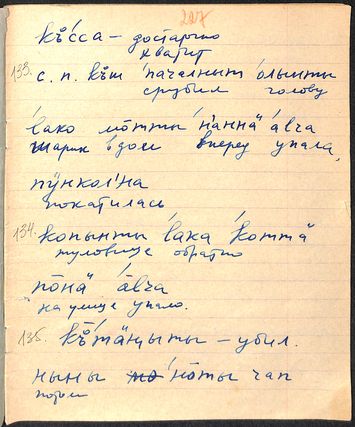 227
къ́сса – достаточно
хватит
133. с. п. къш ́пачалныт о́лымты
срубил голову
ла́ко мо̄тты н́аннӓ а́вча
Шарик в дом вперед упала,
пӱнкол́на
покатилась
134. копынты ла́ка ко́ттӓ
туловище обратно
по̄нӓ а́вча
на улице упало.
135. къ̊́тӓңыты – убил.
ныны но̄ты чап
потом